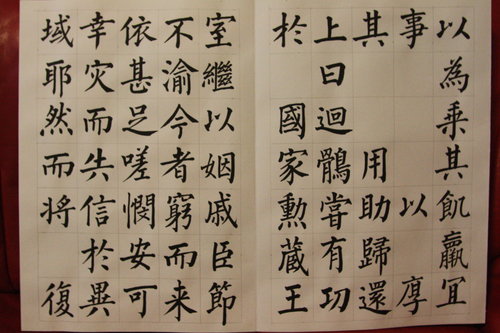 以為乘其飢羸宜
事以厚
其用助歸還
上曰迴鶻嘗有功
於國家勲蔵王
室繼以姻戚臣節
不渝今者窮而来
依甚足嗟憫安可
幸灾而失信於異
域耶然而将復